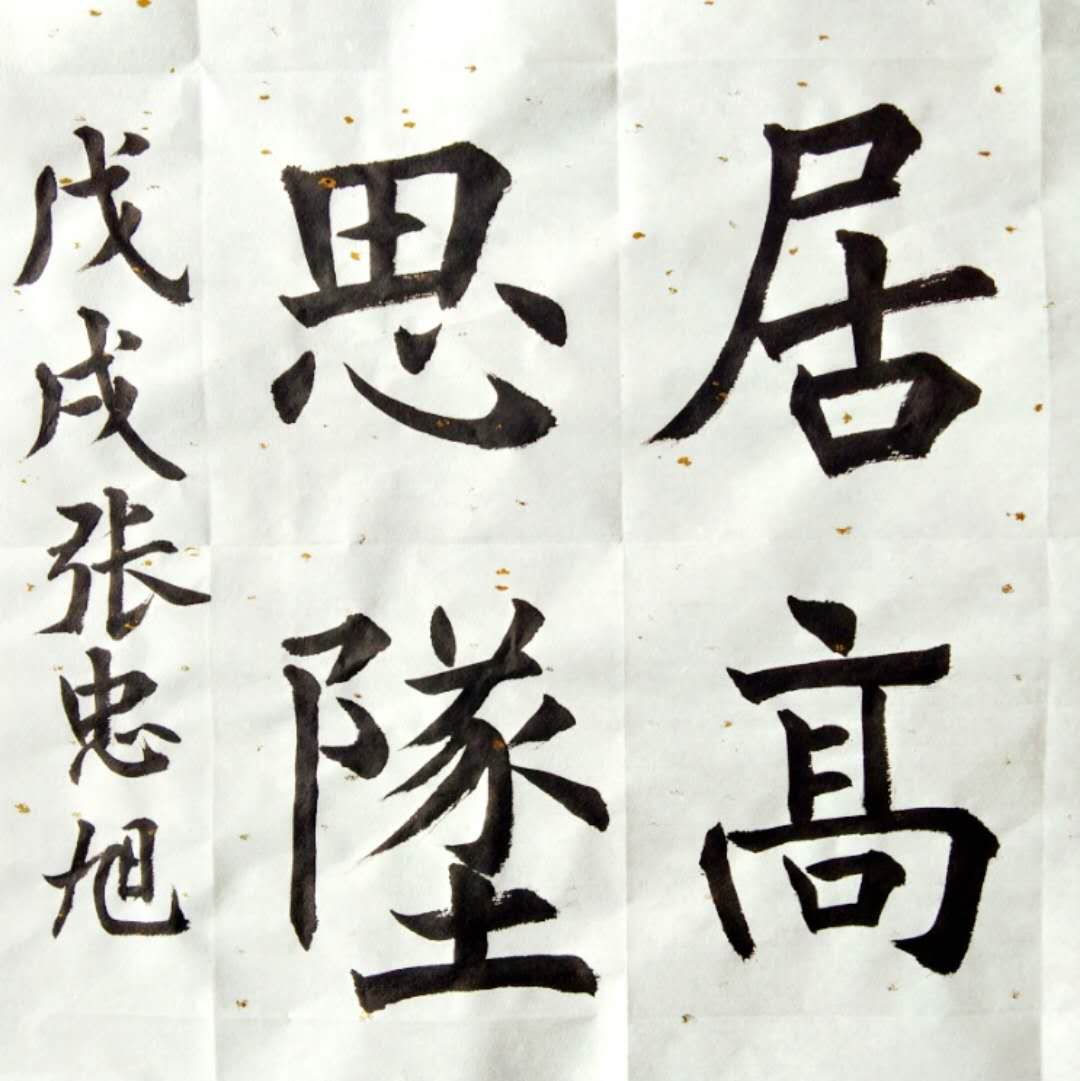 居髙
思墜
戊戌張忠旭